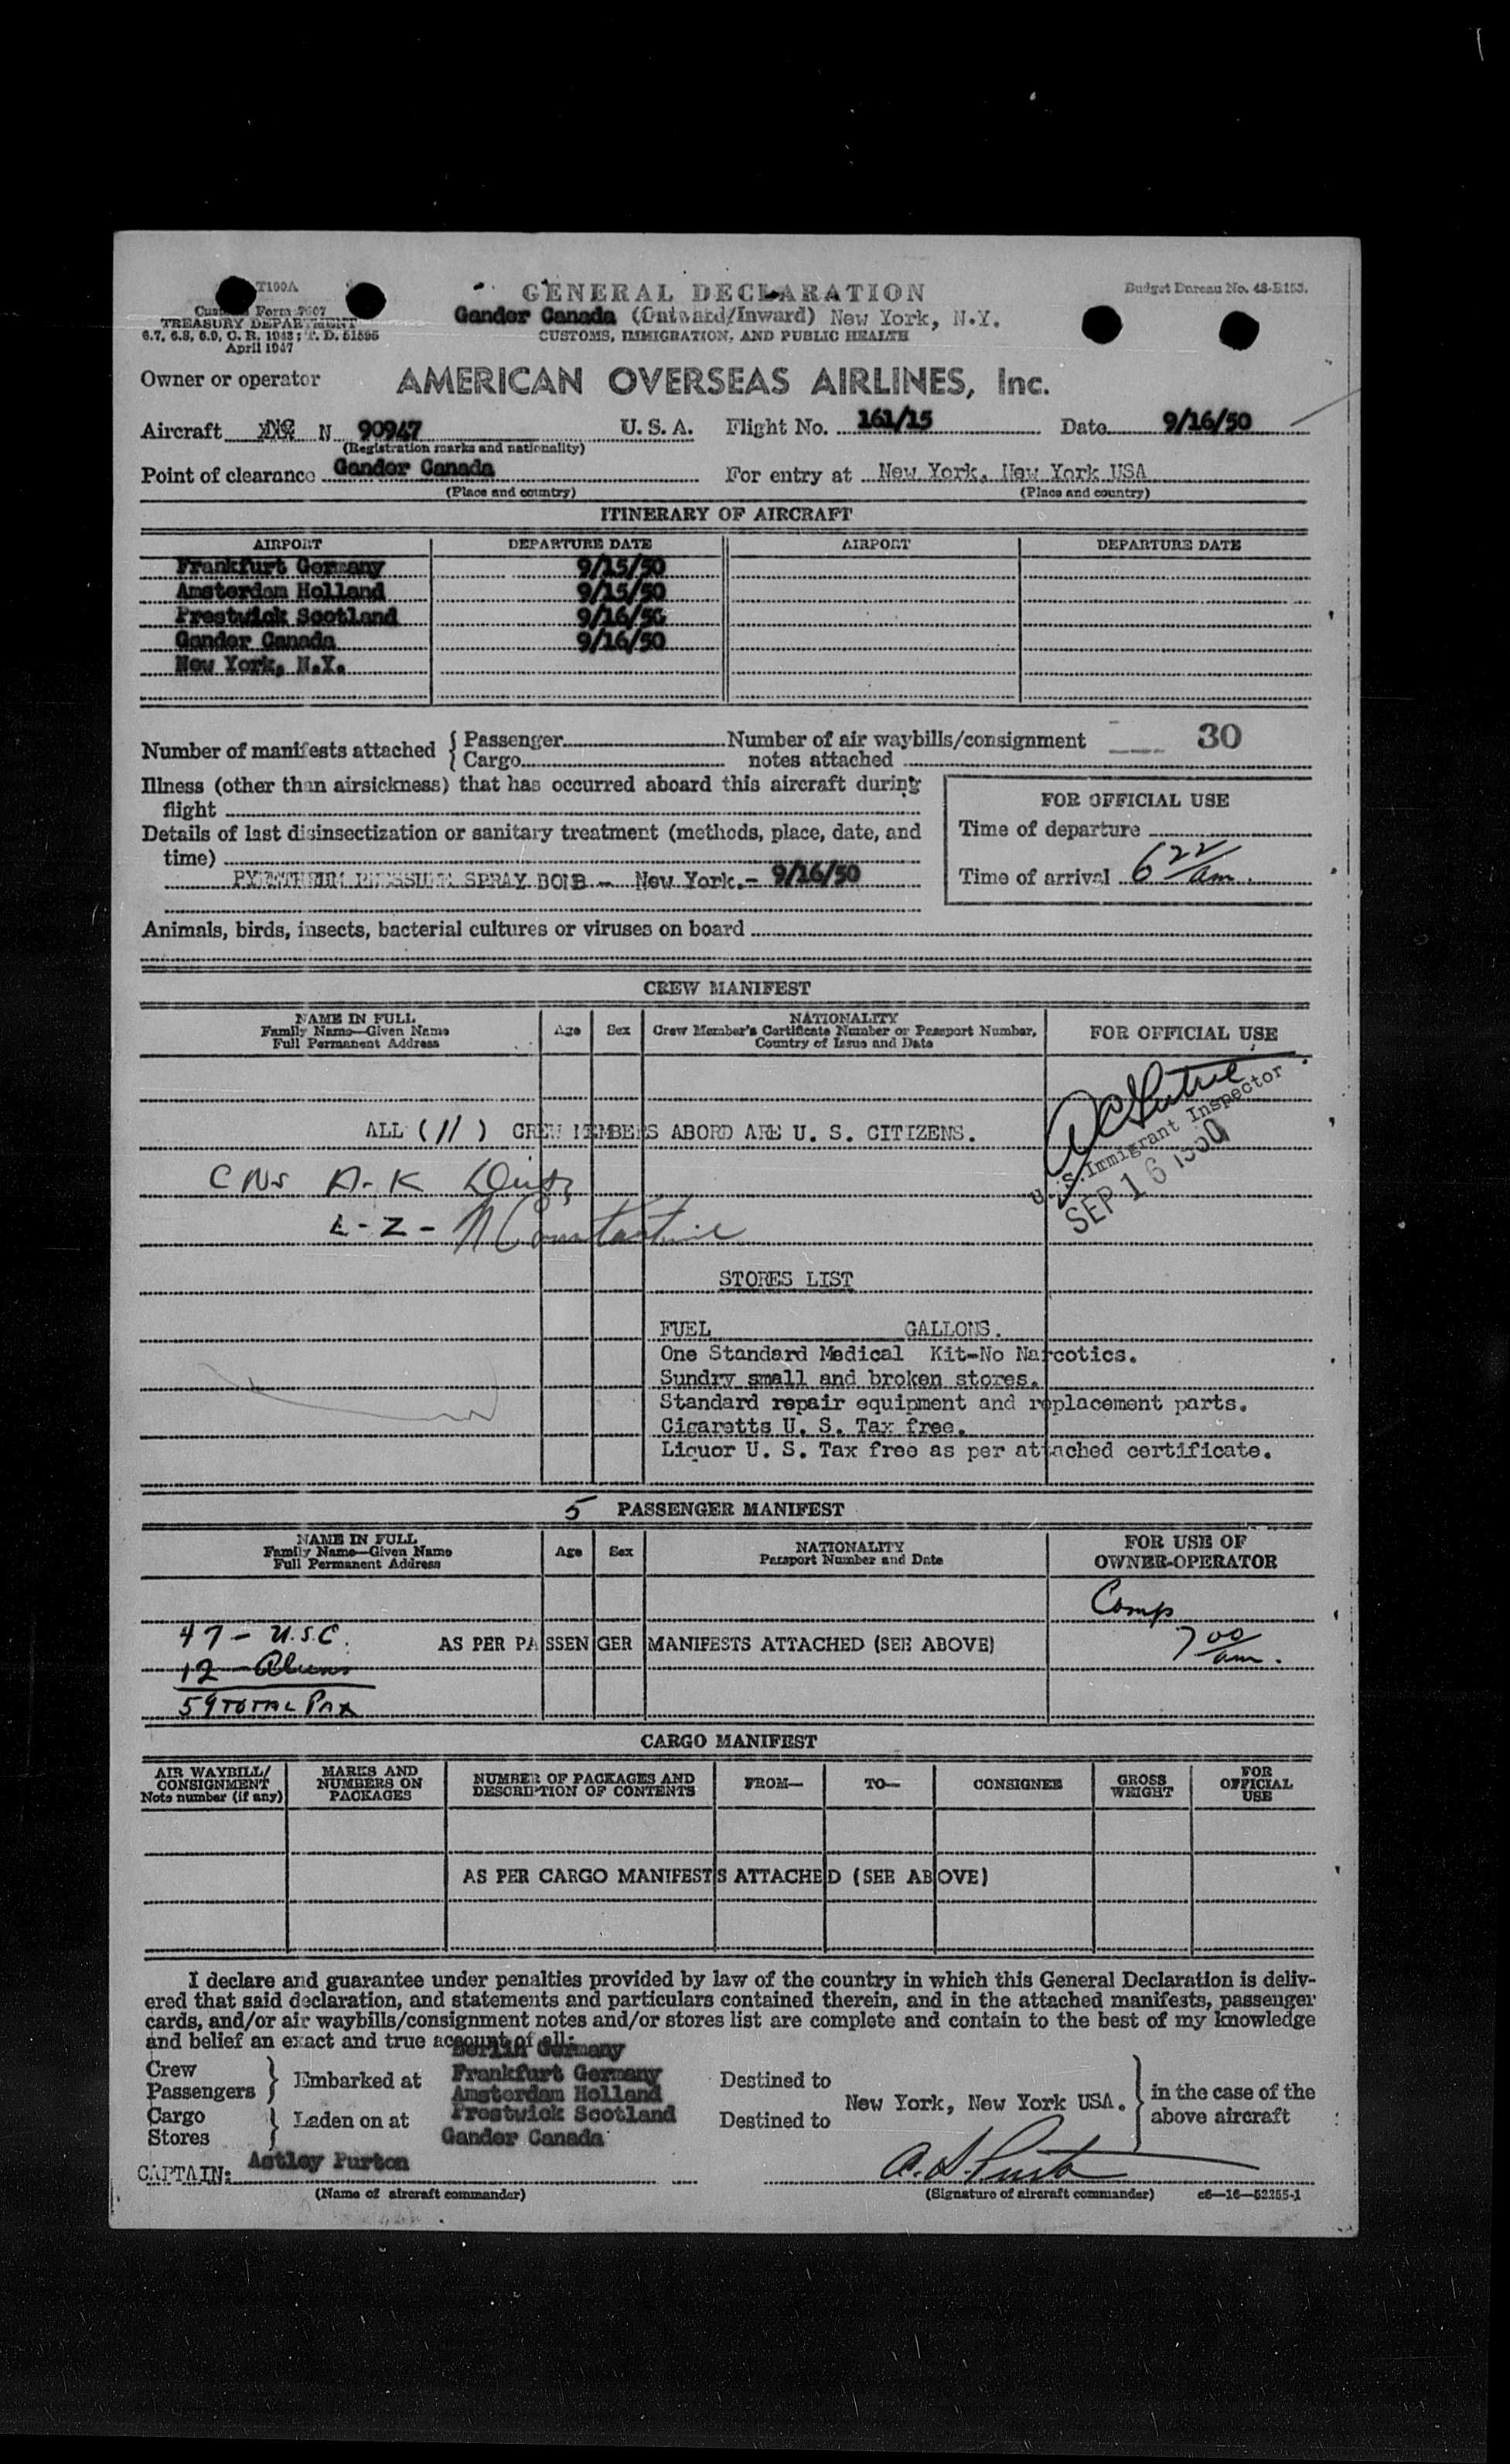 T100A
Customs Form 7507
TREASURY DEPARTMENT
6.7, 6.8, 6.9, C. R. 1943; T. D. 51595
April 1947
GENERAL DECLARATION
Budget Bureau No. 48-R153.
Gander Canada (Outward/Inward) New York, N.Y.
CUSTOMS, IMMIGRATION, AND PUBLIC HEALTH
Owner or operator AMERICAN OVERSEAS AIRLINES, Inc.
Aircraft N 90947 U. S. A. Flight No. 161/15 Date 9/16/50
(Registration marks and nationality)
Point of clearance Gander Canada For entry at New York, New York USA
(Place and country) (Place and country)
ITINERARY OF AIRCRAFT
AIRPORT DEPARTURE DATE AIRPORT DEPARTURE DATE
Frankfurt Germany 9/15/50
Amsterdam Holland 9/15/50
Prestwick Scotland 9/16/50
Gander Canada 9/16/50
New York, N.Y.
Number of manifests attached { Passenger Number of air waybills/consignment 30
Cargo notes attached
Illness (other than airsickness) that has occurred aboard this aircraft during
flight
FOR OFFICIAL USE
Details of last disinsectization or sanitary treatment (methods, place, date, and
time)
Time of departure
PYRETHRUM PRESSURE SPRAY BOMB - New York.- 9/16/50
Time of arrival 6 22/am.
Animals, birds, insects, bacterial cultures or viruses on board
CREW MANIFEST
NAME IN FULL
Family Name—Given Name
Full Permanent Address
Age Sex
NATIONALITY
Crew Member's Certificate Number or Passport Number,
Country of Issue and Date
FOR OFFICIAL USE
U. S. Immigrant Inspector
SEP 16 1950
ALL (11) CREW MEMBERS ABORD ARE U. S. CITIZENS.
CNS A-K
L-Z- N Constantine
STORES LIST
FUEL GALLONS.
One Standard Medical Kit-No Narcotics.
Sundry small and broken stores.
Standard repair equipment and replacement parts.
Cigaretts U. S. Tax free.
Liquor U. S. Tax free as per attached certificate.
5 PASSENGER MANIFEST
NAME IN FULL
Family Name—Given Name
Full Permanent Address
Age Sex
NATIONALITY
Passport Number and Date
FOR USE OF
OWNER-OPERATOR
Comp
7 00/am.
47 - U.S.C.
AS PER PASSENGER MANIFESTS ATTACHED (SEE ABOVE)
12 - Aliens
59 TOTAL PAX
CARGO MANIFEST
AIR WAYBILL/
CONSIGNMENT
Note number (if any)
MARKS AND
NUMBERS ON
PACKAGES
NUMBER OF PACKAGES AND
DESCRIPTION OF CONTENTS
FROM— TO— CONSIGNEE
GROSS
WEIGHT
FOR
OFFICIAL
USE
AS PER CARGO MANIFESTS ATTACHED (SEE ABOVE)
I declare and guarantee under penalties provided by law of the country in which this General Declaration is deliv-
ered that said declaration, and statements and particulars contained therein, and in the attached manifests, passenger
cards, and/or air waybills/consignment notes and/or stores list are complete and contain to the best of my knowledge
and belief an exact and true account of all:
Berlin Germany
Crew
Passengers } Embarked at Frankfurt Germany Destined to
Amsterdam Holland
New York, New York USA. } in the case of the
above aircraft
Cargo
Stores } Laden on at Prestwick Scotland Destined to
Gander Canada
CAPTAIN: Astley Purton A. S. Purton
(Name of aircraft commander) (Signature of aircraft commander) c6—16—52255-1